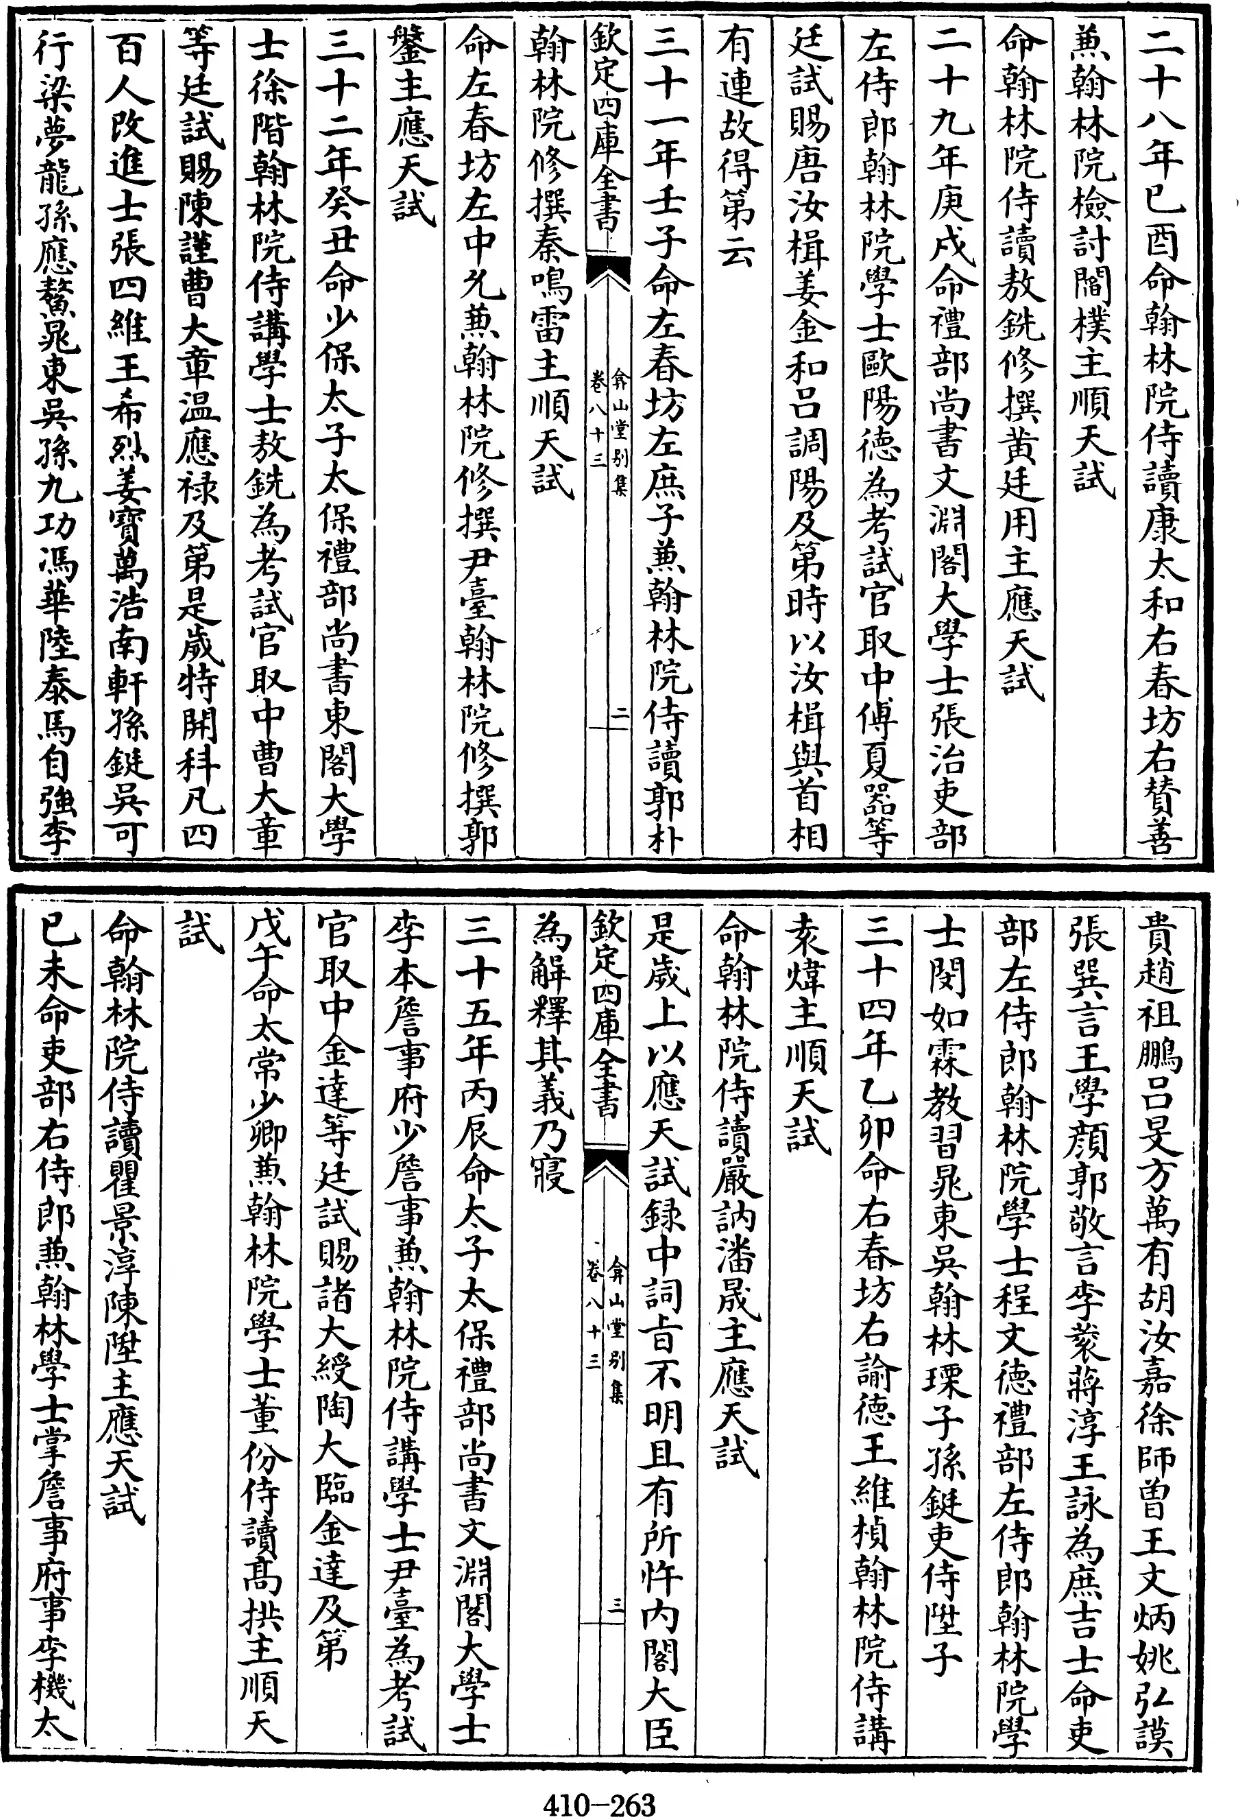 二十八年已酉命翰林院侍讀康太和右春坊右贊善
兼翰林院檢討閻樸主順天試
命翰林院侍讀敖銑修撰黄廷用主應天試
二十九年庚戌命禮部尚書文淵閣大學士張治吏部
左侍郎翰林院學士歐陽德為考試官取中傅夏器等
廷試賜唐汝楫姜金和吕調陽及第時以汝楫與首相
有連故得第云
三十一年壬子命左春坊左庶子兼翰林院侍讀郭朴
欽定四庫全書
弇山堂别集
卷八十三
二
翰林院修撰秦鳴雷主順天試
命左春坊左中允兼翰林院修撰尹臺翰林院修撰郭
鎜主應天試
三十二年癸丑命少保太子太保禮部尚書東閣大學
士徐階翰林院侍講學士敖銑為考試官取中曹大章
等廷試賜陳謹曹大章温應禄及第是歲特開科凡四
百人改進士張四維王希烈姜寳萬浩南軒孫鋌吳可
行梁夢龍孫應鰲晁東吳孫九功馮華陸泰馬自強李
貴趙祖鵬吕旻方萬有胡汝嘉徐師曾王文炳姚弘謨
張巽言王學顔郭敬言李袠蔣淳王詠為庶吉士命吏
部左侍郎翰林院學士程文徳禮部左侍郎翰林院學
士閔如霖教習晁東吳翰林瑮子孫鋌吏侍陞子
三十四年乙卯命右春坊右諭徳王維楨翰林院侍講
袁煒主順天試
命翰林院侍讀嚴訥潘晟主應天試
是歲上以應天試録中詞㫖不明且有所忤内閣大臣
欽定四庫全書
弇山堂别集
卷八十三
三
為解釋其義乃寢
三十五年丙辰命太子太保禮部尚書文淵閣大學士
李本詹事府少詹事兼翰林院侍講學士尹臺為考試
官取中金達等廷試賜諸大綬陶大臨金達及第
戊午命太常少卿兼翰林院學士董份侍讀髙拱主順天
試
命翰林院侍讀瞿景淳陳陞主應天試
已未命吏部右侍郎兼翰林學士掌詹事府事李機太
410-263